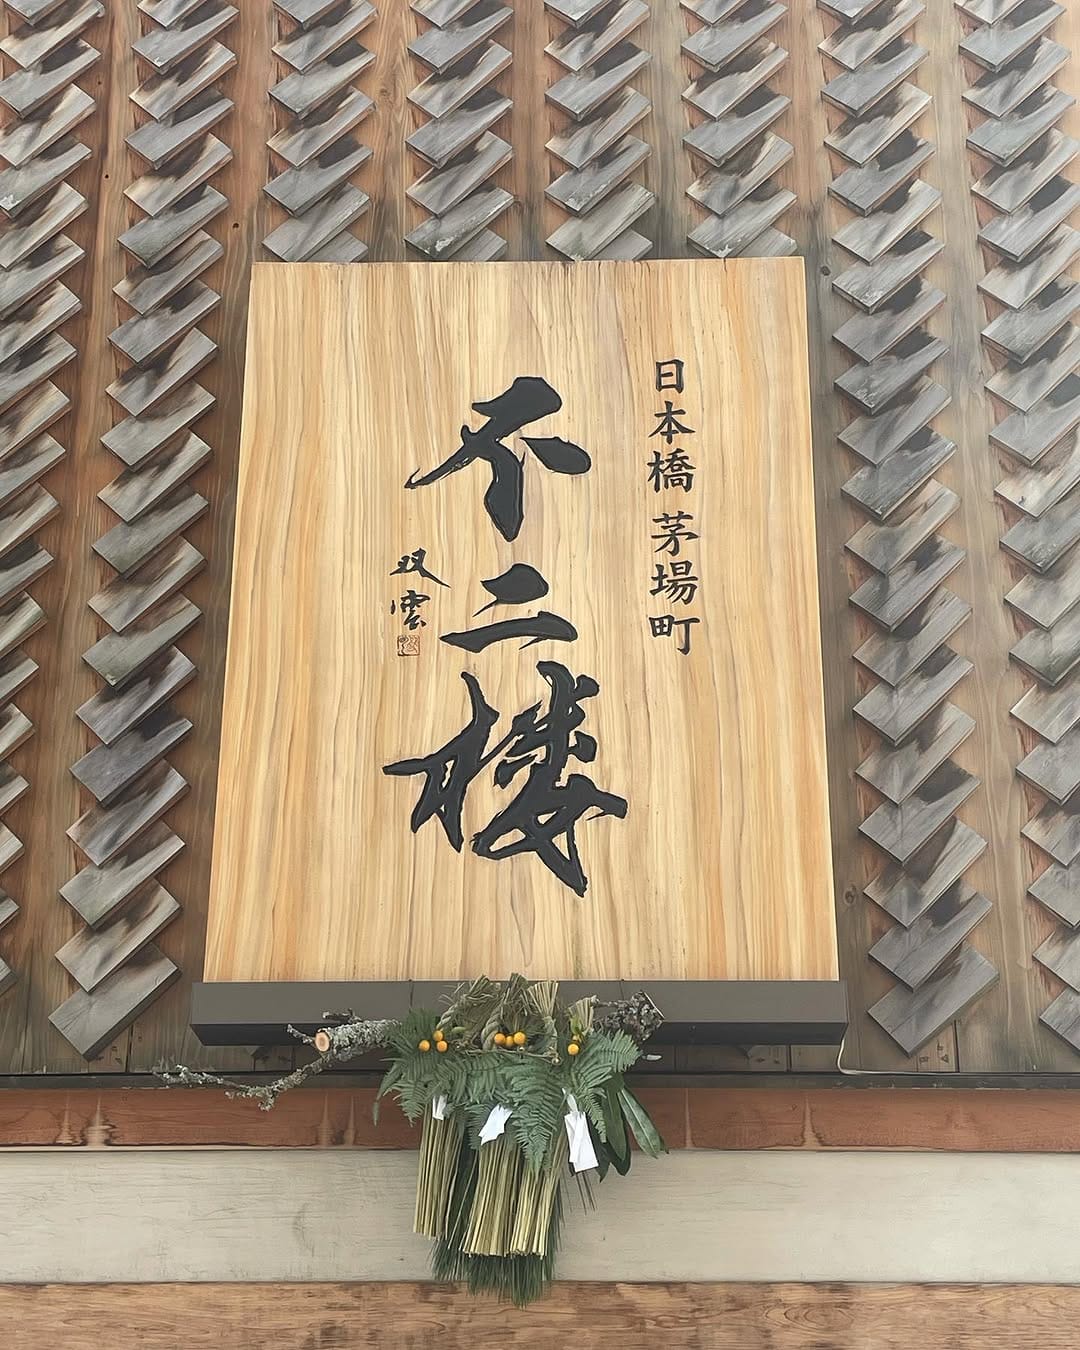 日本橋 茅場町
不二楼
双雲